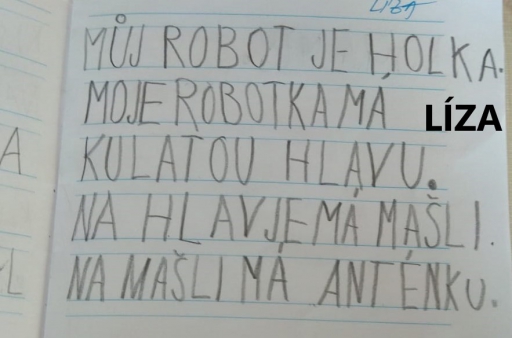 LÍZA
MŮJ ROBOT JE HOLKA.
MOJE ROBOTKA MÁ
LÍZA
KULATOU HLAVU.
A
NA HLAVJE MÁ MAŠLI.
NA MAŠLI MÁ ANTÉNKU.
L